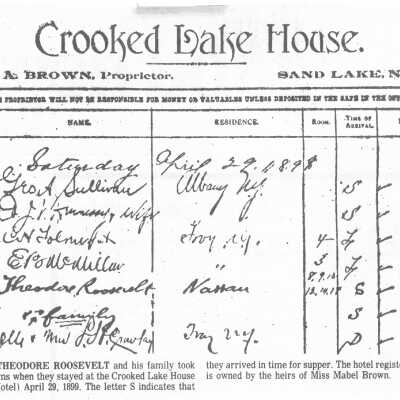 Crooked Lake House.
A. BROWN, Proprietor. SAND LAKE, N
PROPRIETOR WILL NOT BE RESPONSIBLE FOR MONEY OR VALUABLES UNLESS DEPOSITED IN THE SAFE IN THE OFF
NAME. RESIDENCE. ROOM. TIME OF ARRIVAL.
Saturday April 29, 1898
Geo A Sullivan Albany N.Y. S
Wife S
Troy N.Y. 4
E B McMillan " 3
8.9.10
Theodore Roosevelt Nassau 12.14.15 S
& family
Mrs Troy N.Y. D
THEODORE ROOSEVELT and his family took
ns when they stayed at the Crooked Lake House
otel) April 29, 1899. The letter S indicates that
they arrived in time for supper. The hotel registe
is owned by the heirs of Miss Mabel Brown.